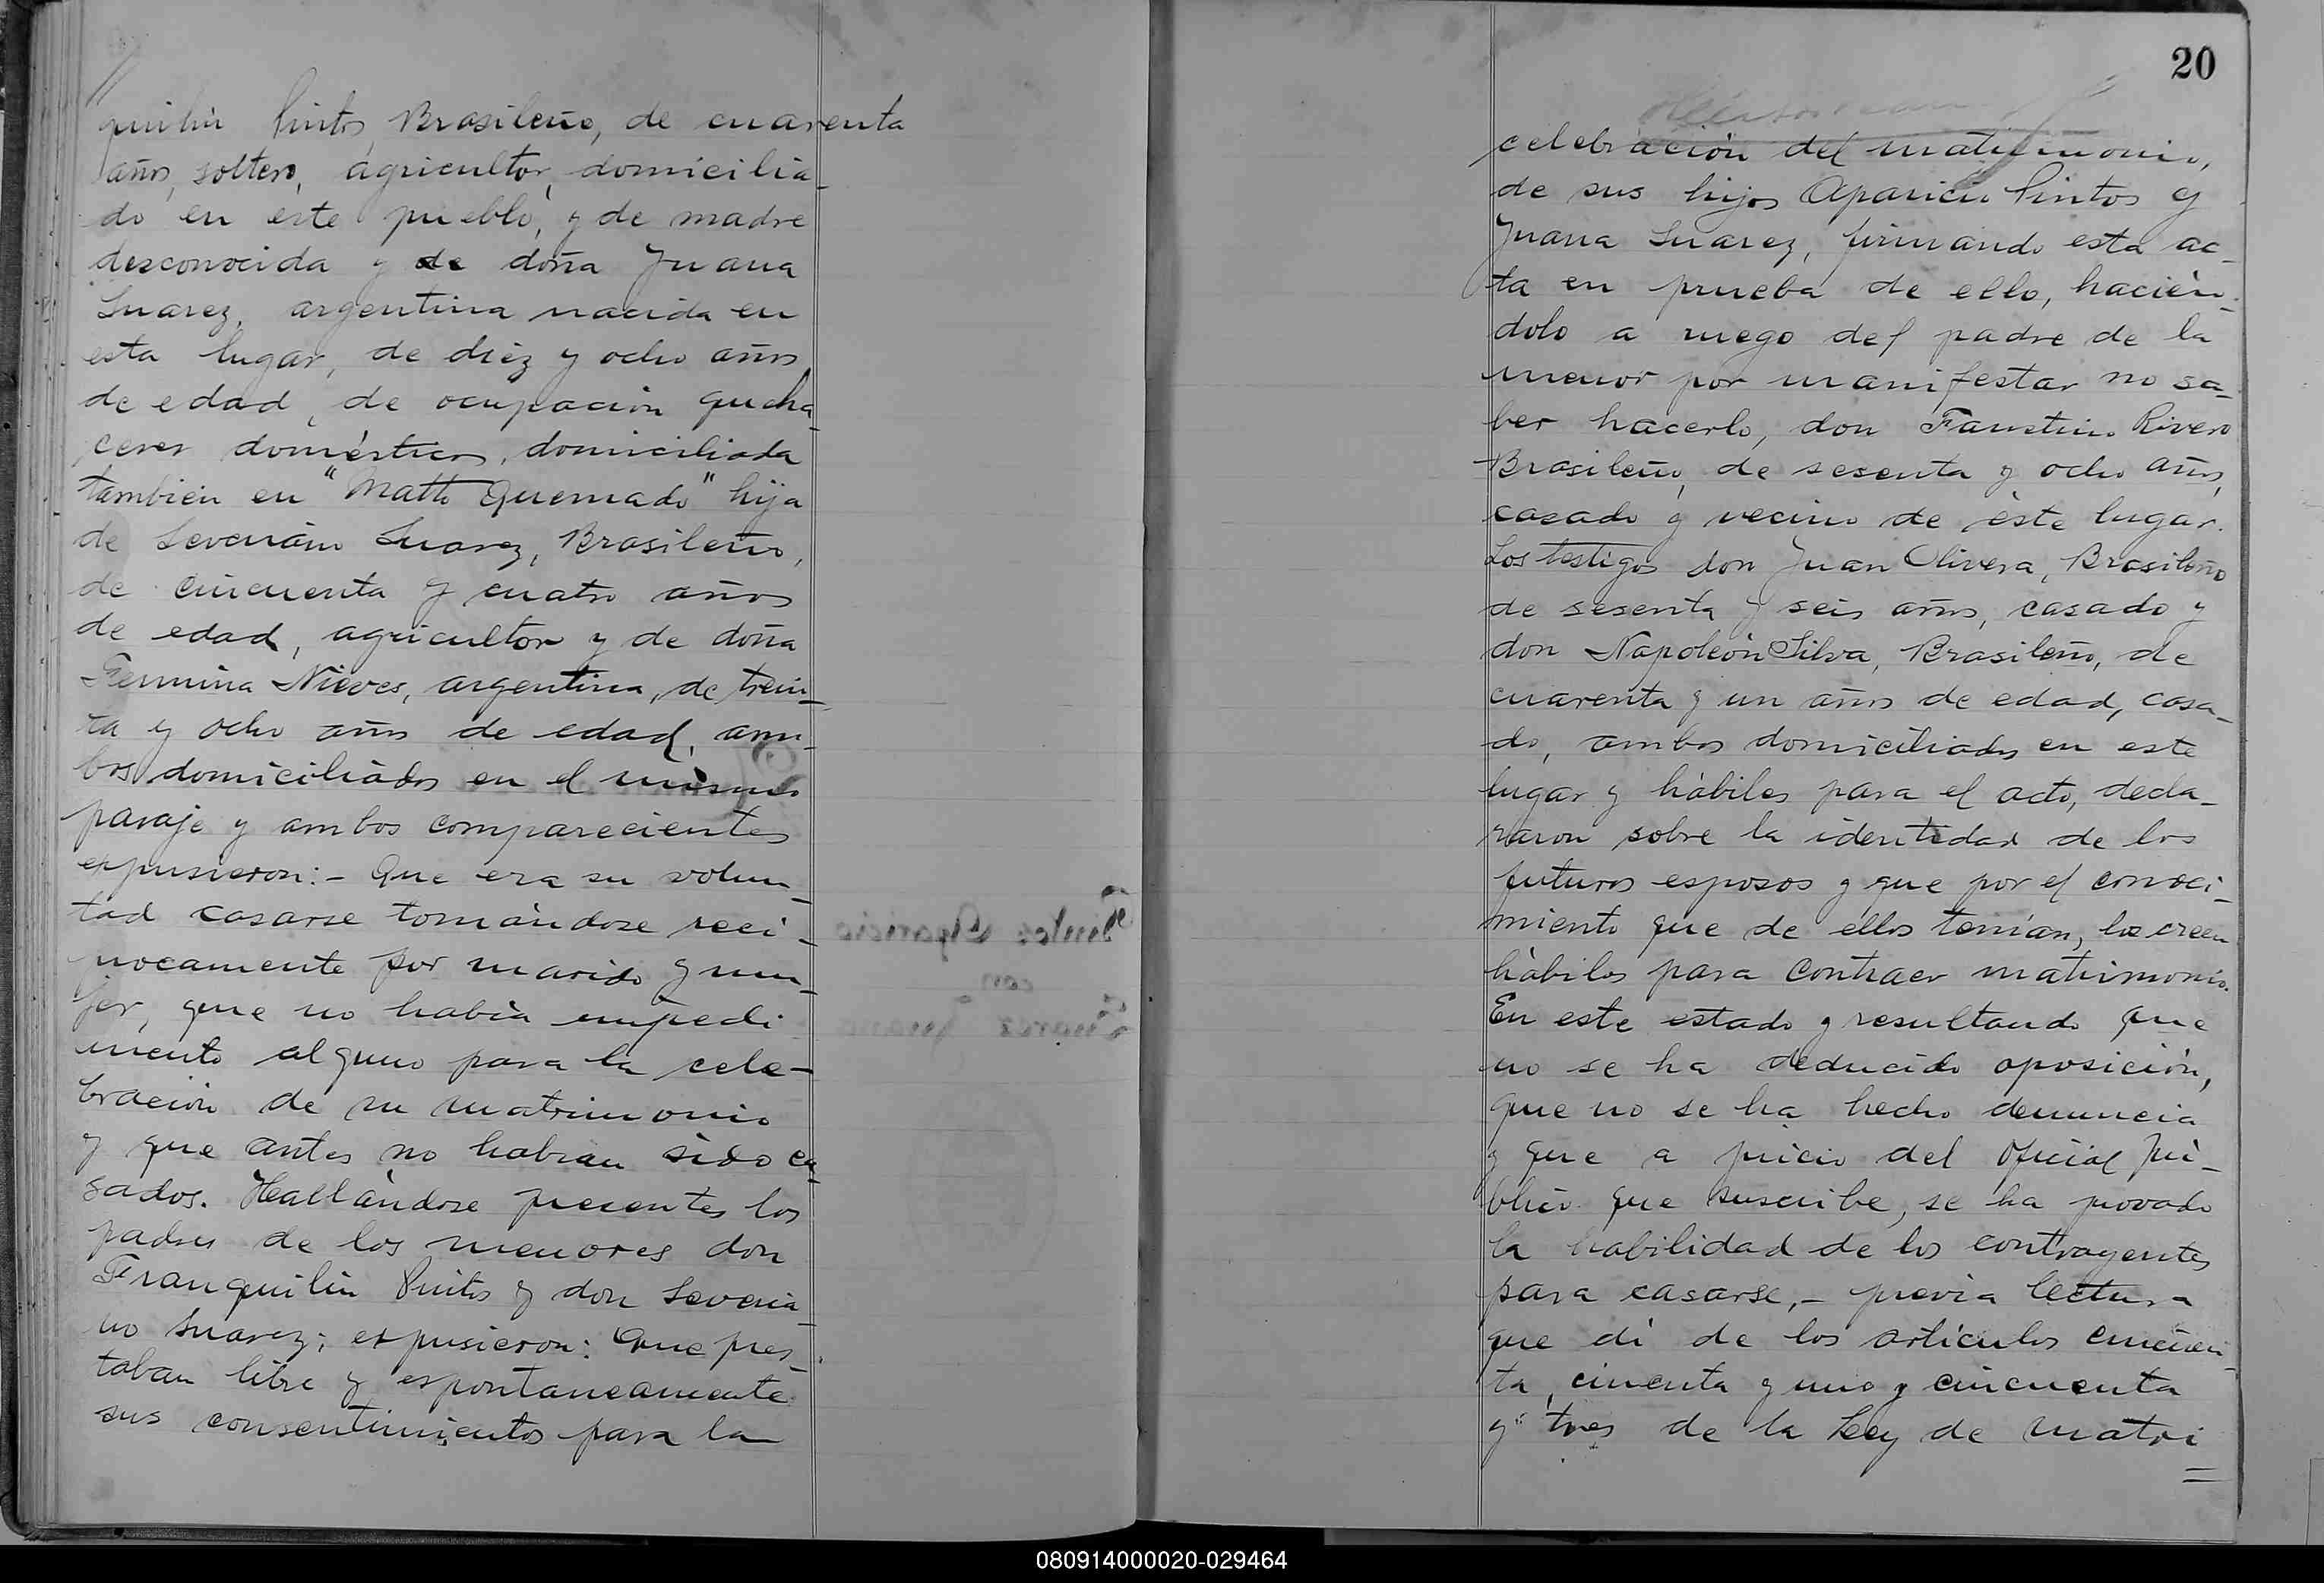 quilin Pintos, Brasileño, de cuarenta
años, soltero, agricultor, domicilia-
do en este pueblo, y de madre
desconocida y de doña Juana
Suarez, argentina nacida en
esta lugar, de diez y ocho años
de edad, de ocupación queha-
ceres domésticos, domiciliada
también en "Matto Quemado" hija
de Severiano Suarez, Brasileño,
de cincuenta y cuatro años
de edad, agricultor y de doña
Fermina Nieves, argentina, de trein-
ta y ocho años de edad, am-
bos domiciliados en el mismo
paraje y ambos comparecientes
expusieron:- Que era su volun-
tad casarse tomándose reci-
procamente por marido y mu-
jer, que no había impedi
mento alguno para la cele-
bración de su matrimonio
y que antes no habían sido ca-
sados. Hallándose presentes los
padres de los menores don
Franquilin Pintos y don Severia-
no Suarez; expusieron: Que pres-
taban libre y espontaneamente
sus consentimientos para la
Pintos Aparicio
con
Suarez Juana
20
celebración del matrimonio,
de sus hijos Aparicio Pintos y
Juana Suarez, firmando esta ac-
ta en prueba de ello, hacién-
dolo a ruego del padre de la
menor por manifestar no sa-
ber hacerlo, don Faustino Rivero
Brasileño, de sesenta y ocho años,
casado y vecino de éste lugar.
Los testigos don Juan Olivera, Brasileño
de sesenta y seis años, casado y
don Napoleón Silva, Brasileño, de
cuarenta y un años de edad, casa-
do, ambos domiciliados en este
lugar y hábiles para el acto, decla-
raron sobre la identidad de los
futuros esposos y que por el conoci-
miento que de ellos tenían, los creen
hábiles para contraer matrimonio.
En este estado y resultando que
no se ha deducido oposición,
que no se ha hecho denuncia
y que a juicio del Oficial Pú-
blico que suscribe, se ha provado
la habilidad de los contrayentes
para casarse,- previa lectura
que dí de los artículos cincuen-
ta, cincenta y uno y cincuenta
y tres de la Ley de matri
=
080914000020-029464